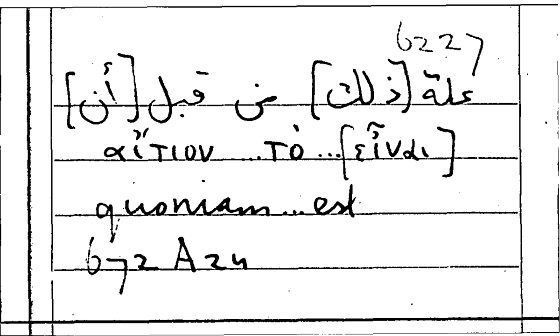 6227
علة [ذلك] من قبل [أن]
αἴτιον...τὸ...[εἶναι]
quoniam...est
672 A 24